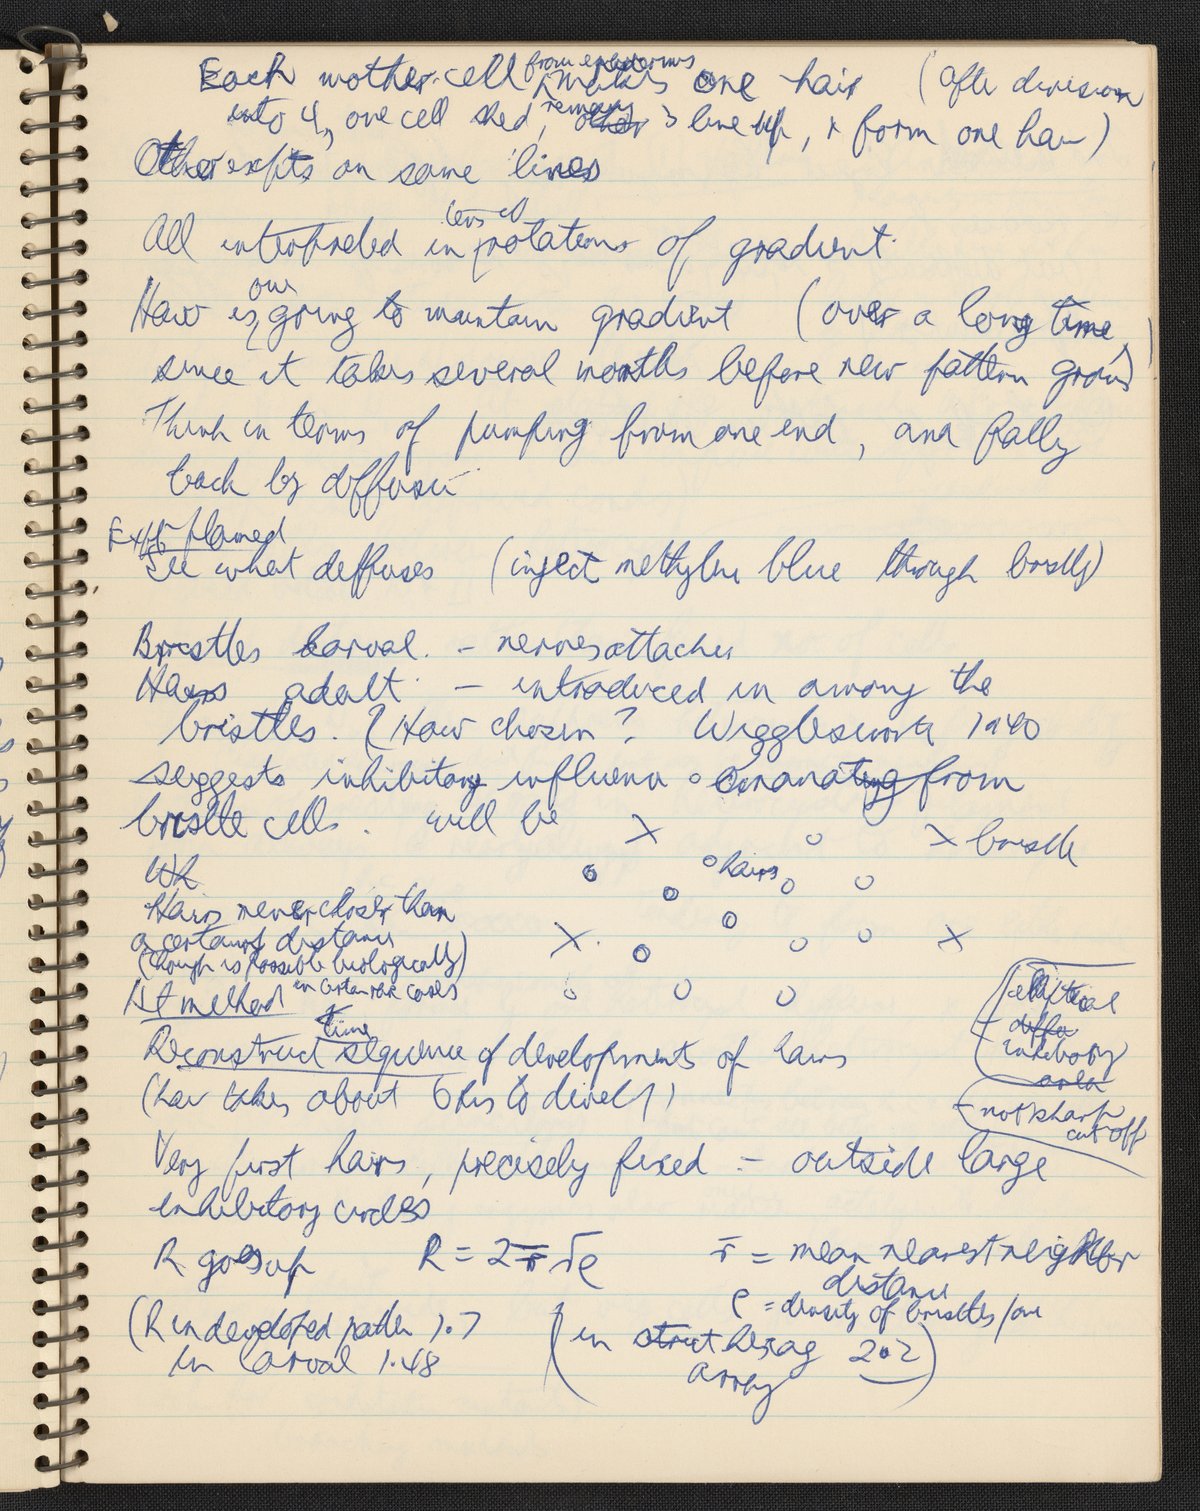 Each mother cell from epidermis makes one hair (after division
into 4, one cell shed, remaining 3 line up, & form one hair)
Other expts on same lines
All interpreted in terms of rotations of gradient.
How is one going to maintain gradient (over a long time,
since it takes several months before new pattern grows)
Think in terms of pumping from one end, and
back by diffusion
Expts planned
See what diffuses (inject methylene blue through bristle)
Bristles larval. - nerves attached
Hairs adult. - introduced in among the
bristles. (How chosen? Wigglesworth 1940
suggests inhibitory influence emanating from
bristle cells. will be
x bristle
hairs
Wh
Hairs never closer than
a certain distance
(though is possible biologically)
in certain rare cases
At method
time
Reconstruct sequence of developments of hairs
(hair takes about 6 hrs to devel)
elliptical
diffu
inhibitory
area
- not sharp
cut off
Very first hairs, precisely fixed - outside large
inhibitory circles
R goes up R = 2 r̄ √ρ r̄ = mean nearest neighbor
distance
ρ = density of bristles/
(R in developed patter 1.7
in larval 1.48
(in strict hexag 2.2)
array